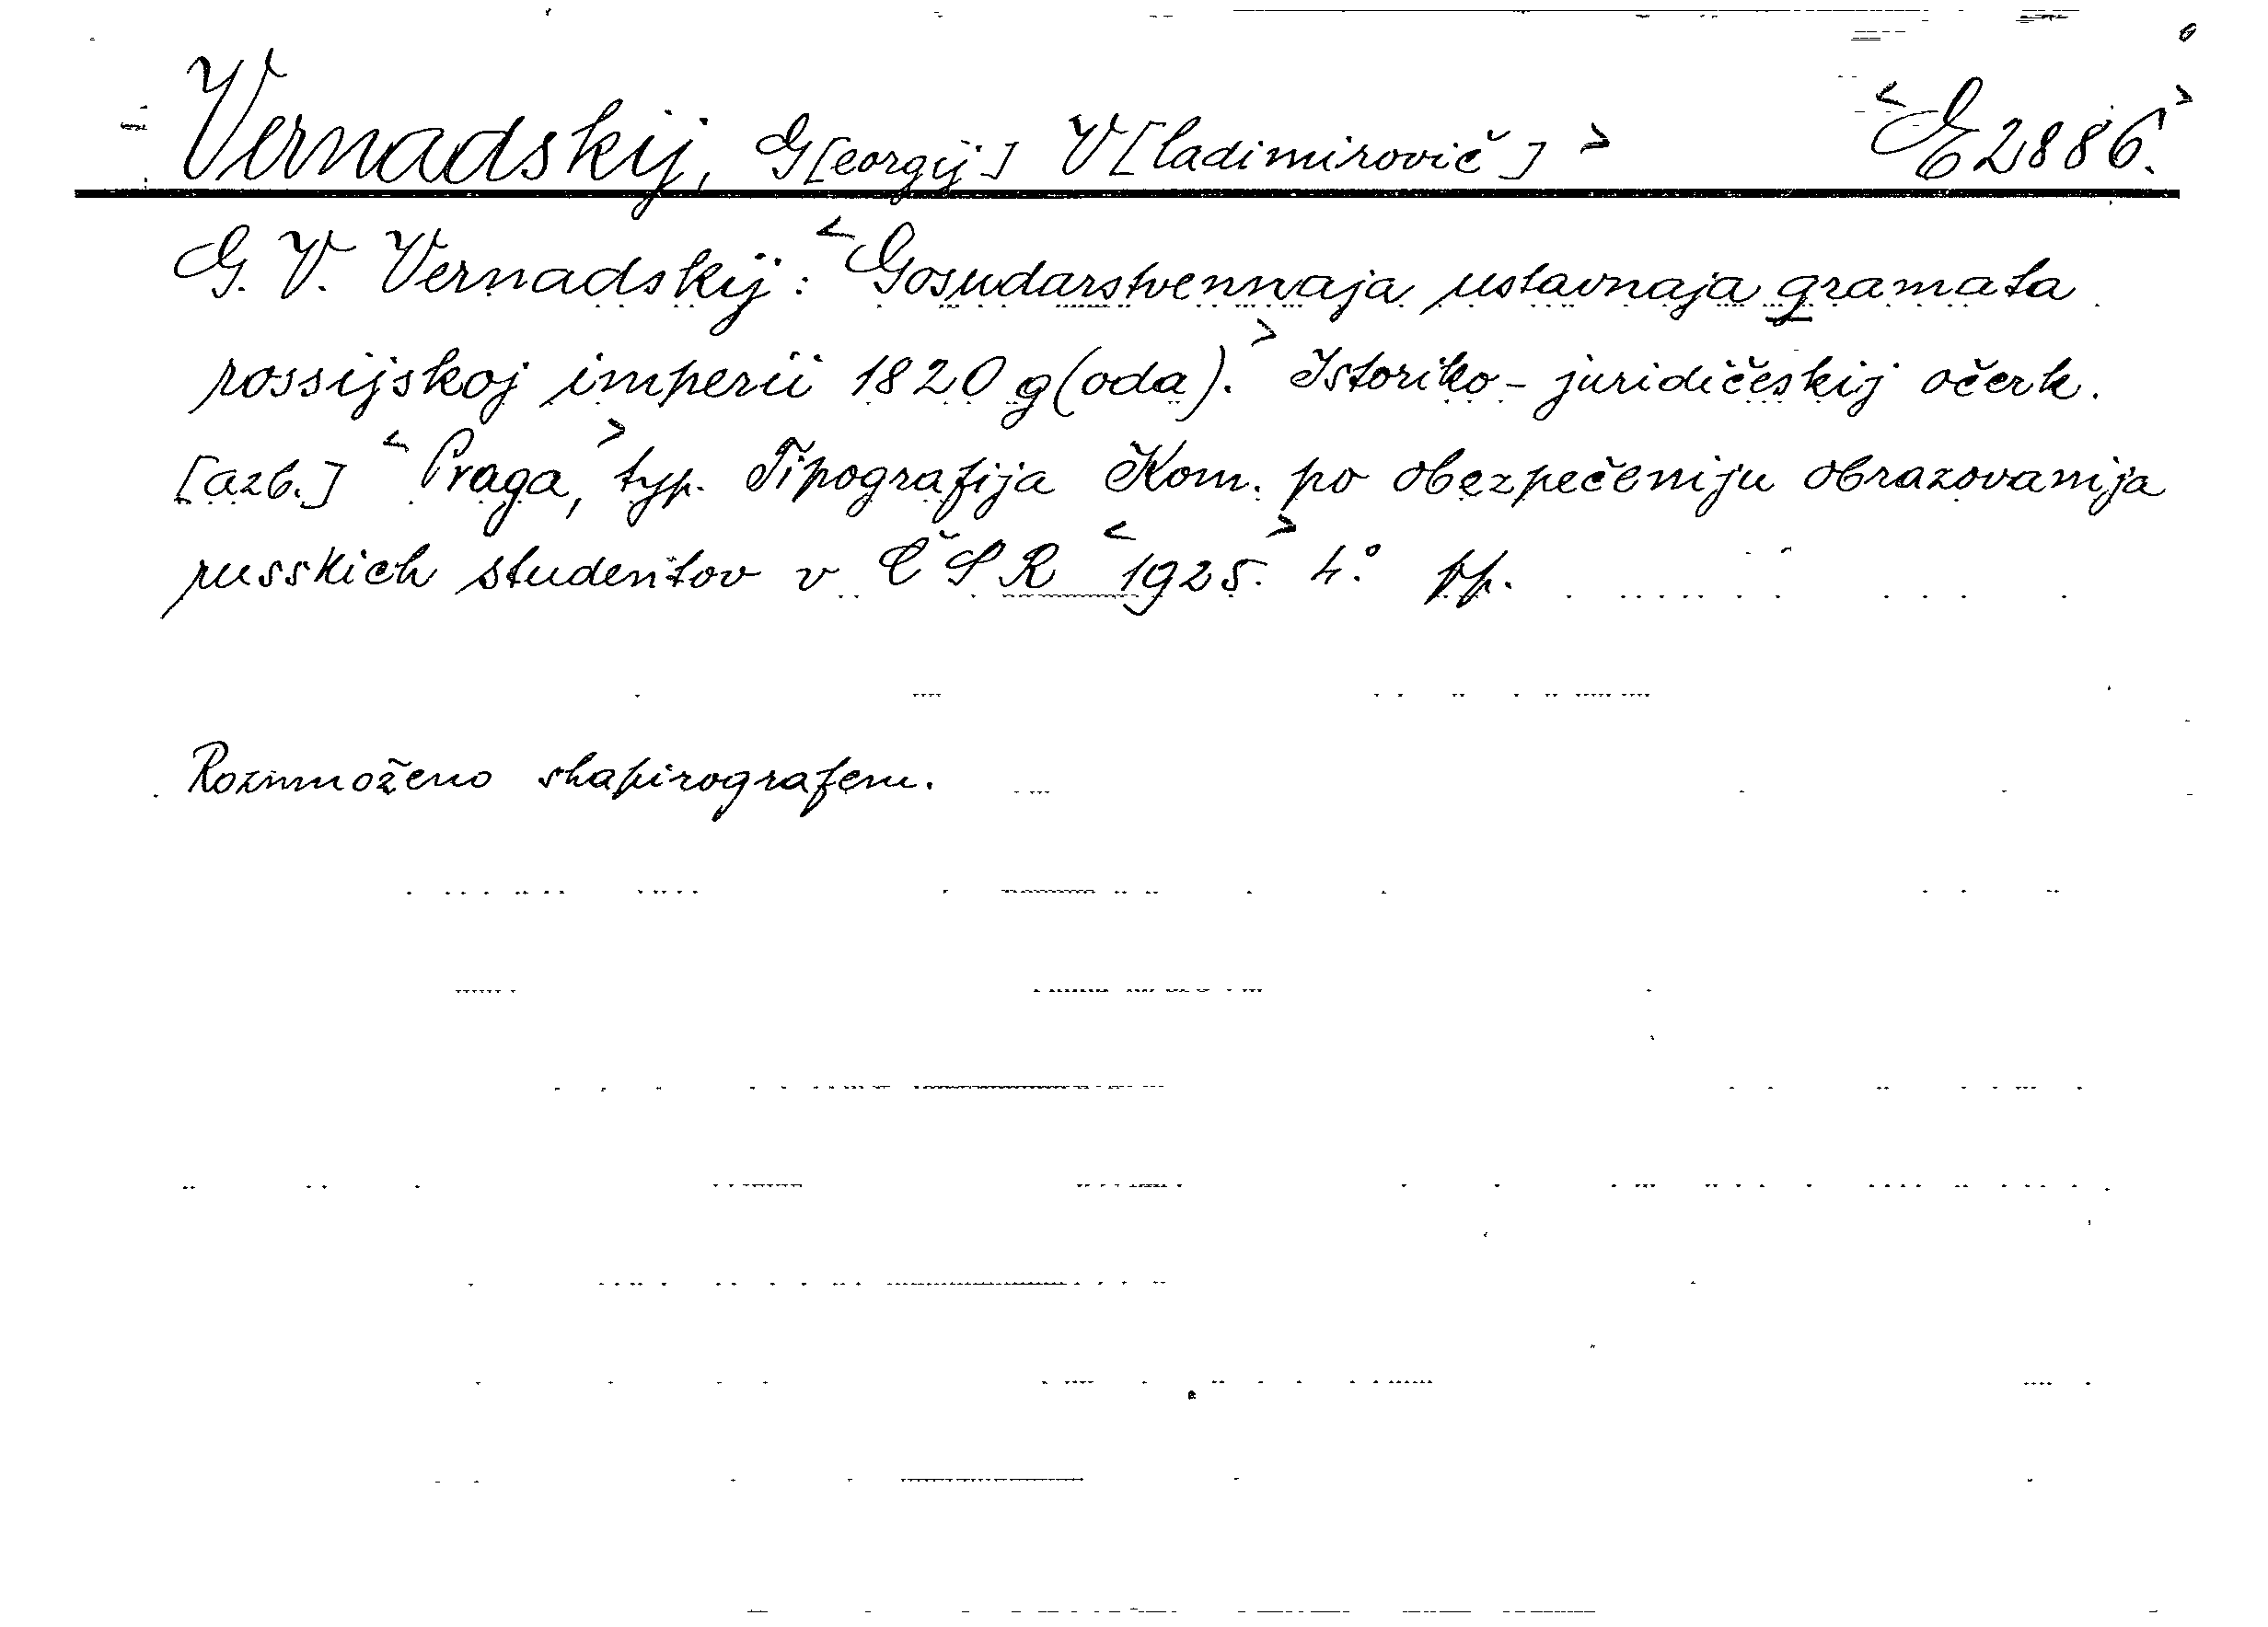 Vernadskij, G[eorgij] V[ladimirovič] > <G 2886.>
G. V. Vernadskij: <Gosudarstvennaja ustavnaja gramata
rossijskoj imperii 1820 g(oda).> Istoriko-juridičeskij očerk.
[azb.] <Praga,> typ. Tipografija Kom. po obezpečeniju obrazovanija
russkich studentov v ČSR <1925.> 4°. pp.
Rozmnoženo shapirografem.